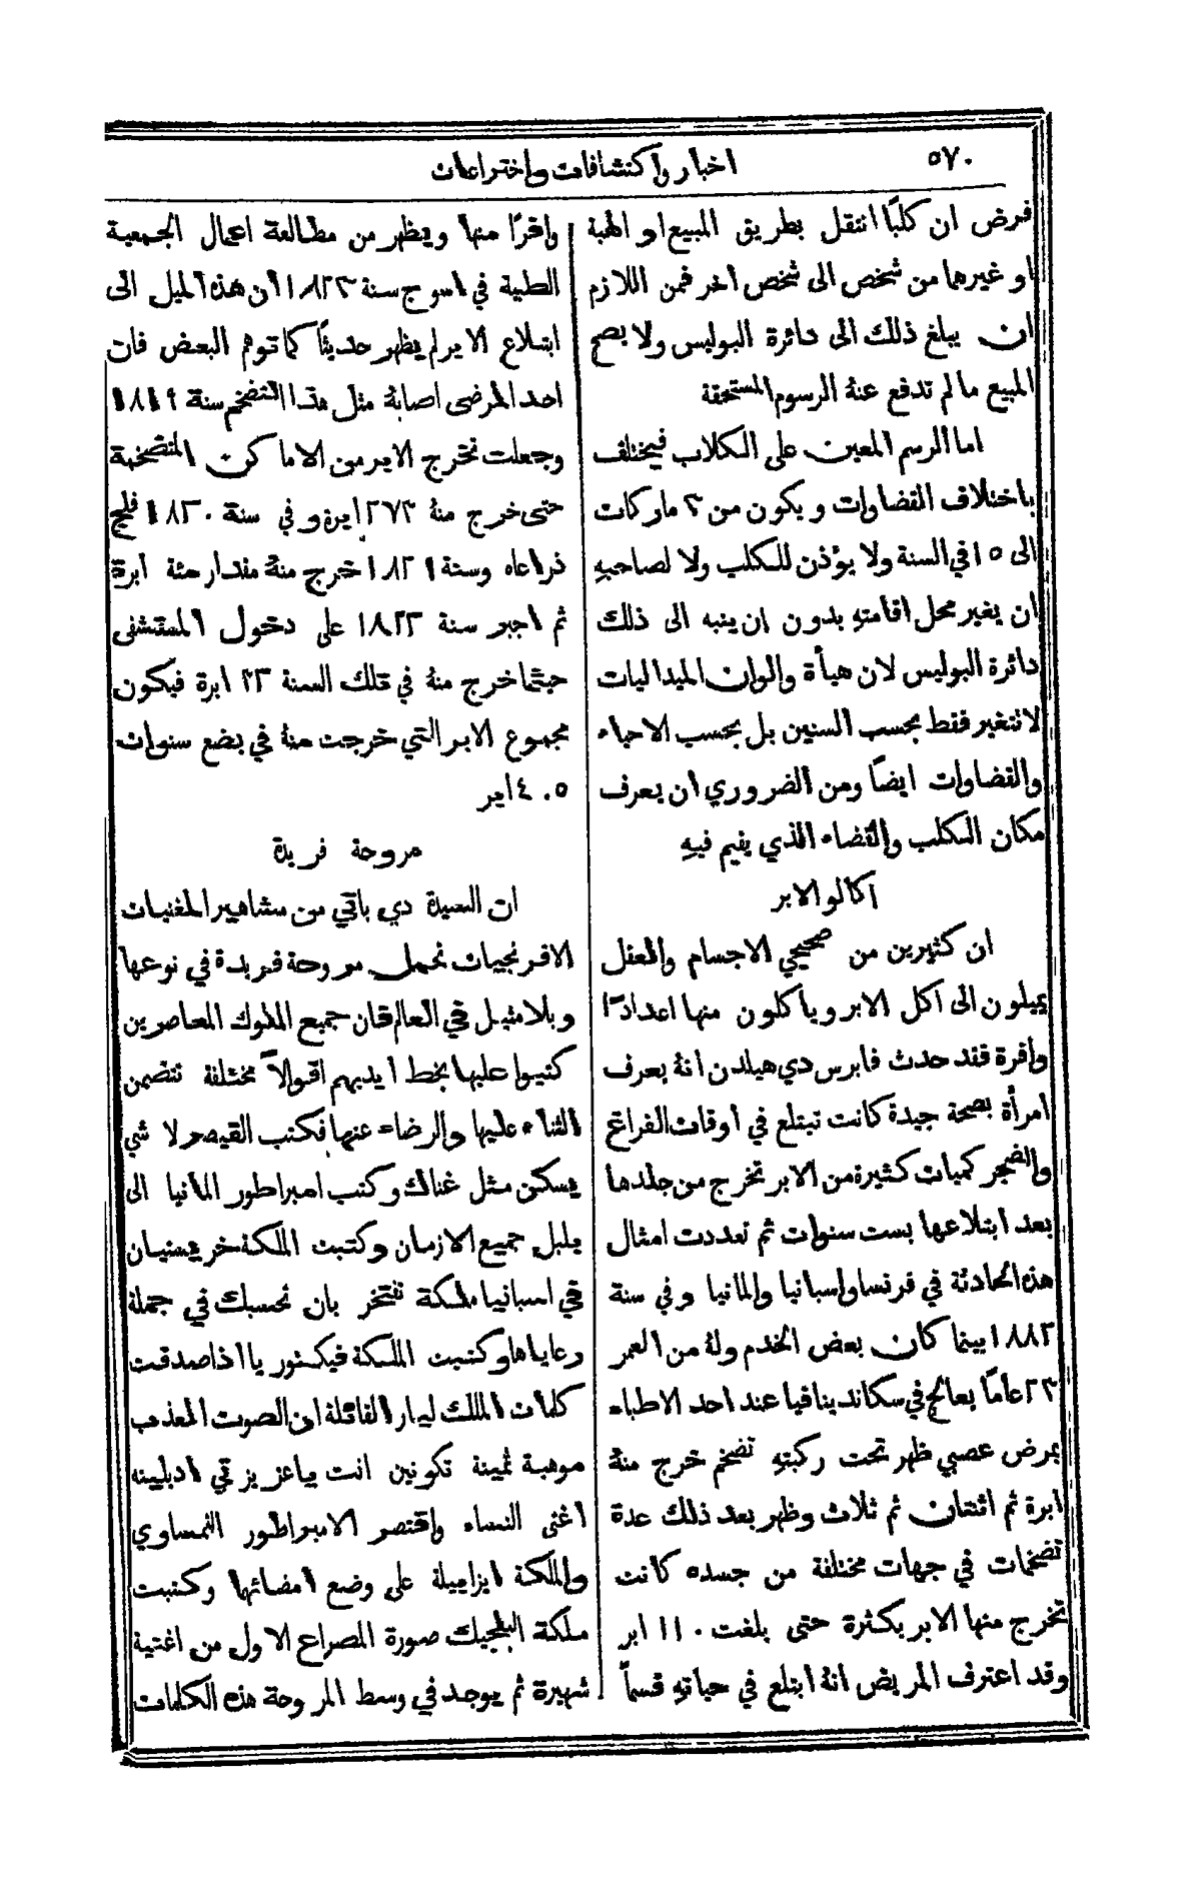 ٥٧٠
اخبار واكتشافات واختراعات
فرض ان كلبًا انتقل بطريق المبيع او الهبة
او غيرها من شخص الى شخص اخر فمن اللازم
ان يبلغ ذلك الى دائرة البوليس ولا يصح
المبيع ما لم تدفع عنهُ الرسوم المستحقة
اما الرسم المعين على الكلاب فيختلف
باختلاف القضاوات ويكون من ٣ ماركات
الى ١٥ في السنة ولا يؤذن للكلب ولا لصاحبهِ
ان يغير محل اقامتهِ بدون ان ينبه الى ذلك
دائرة البوليس لان هيأة والوان الميداليات
لا تتغير فقط بحسب السنين بل بحسب الاحياء
والقضاوات ايضًا ومن الضروري ان يعرف
مكان الكلب والقضاء الذي يقيم فيهِ
آكالو الابر
ان كثيرين من صحيحي الاجسام والعقل
يميلون الى اكل الابر وياكلون منها اعدادًا
وافرة فقد حدث فابرس دي هيلدن انهُ يعرف
امرأة بصحة جيدة كانت تبتلع في اوقات الفراغ
والضجر كميات كثيرة من الابر تخرج من جلدها
بعد ابتلاعها بست سنوات ثم تعددت امثال
هذه الحادثة في فرنسا واسبانيا والمانيا وفي سنة
١٨٨٢ بينما كان بعض الخدم ولهُ من العمر
٢٣ عامًا يعالج في سكاندينافيا عند احد الاطباء
بمرض عصبي ظهر تحت ركبتهِ تضخم خرج منهُ
ابرة ثم اثنتان ثم ثلاث وظهر بعد ذلك عدة
تضخمات في جهات مختلفة من جسده كانت
تخرج منها الابر بكثرة حتى بلغت ١١٠ ابر
وقد اعترف المريض انهُ ابتلع في حياتهِ قسمًا
وافرًا منها ويظهر من مطالعة اعمال الجمعية
الطبية في اسوج سنة ١٨٢٣ ان هذه الميل الى
ابتلاع الابر لم يظهر حديثًا كما توهم البعض فان
احد المرضى اصابهُ مثل هذا التضخم سنة ١٨١٩
وجعلت تخرج الابر من الاماكن المتضخمة
حتى خرج منهُ ٢٧٣ ابرة وفي سنة ١٨٢٠ فلج
ذراعاه وسنة ١٨٢١ خرج منهُ مقدار مئة ابرة
ثم اجبر سنة ١٨٢٢ على دخول المستشفى
حيثما خرج منهُ في تلك السنة ٢٣ ابرة فيكون
مجموع الابر التي خرجت منهُ في بضع سنوات
٤٠٥ ابر
مروحة فريدة
ان السيدة دي باتي من مشاهير المغنيات
الافرنجيات تحمل مروحة فريدة في نوعها
وبلا مثيل في العالم فان جميع الملوك المعاصرين
كتبوا عليها بخط ايديهم اقوالاً مختلفة تتضمن
الثناء عليها والرضاء عنها فكتب القيصر لا شي
يسكن مثل غناك وكتب امبراطور المانيا الى
بلبل جميع الازمان وكتبت الملكة خريستيان
في اسبانيا ملكة تفتخر بان تحسبك في جملة
رعاياها وكتبت الملكة فيكتوريا اذا صدقت
كلمات الملك ليار القائلة ان الصوت المعذب
موهبة ثمينة تكونين انت ياعزيزتي ادلينه
اغنى النساء واقتصر الامبراطور النمساوي
والملكة ايزابيلة على وضع امضائها وكتبت
ملكة البلجيك صورة المصراع الاول من اغنية
شهيرة ثم يوجد في وسط المروحة هذه الكلمات